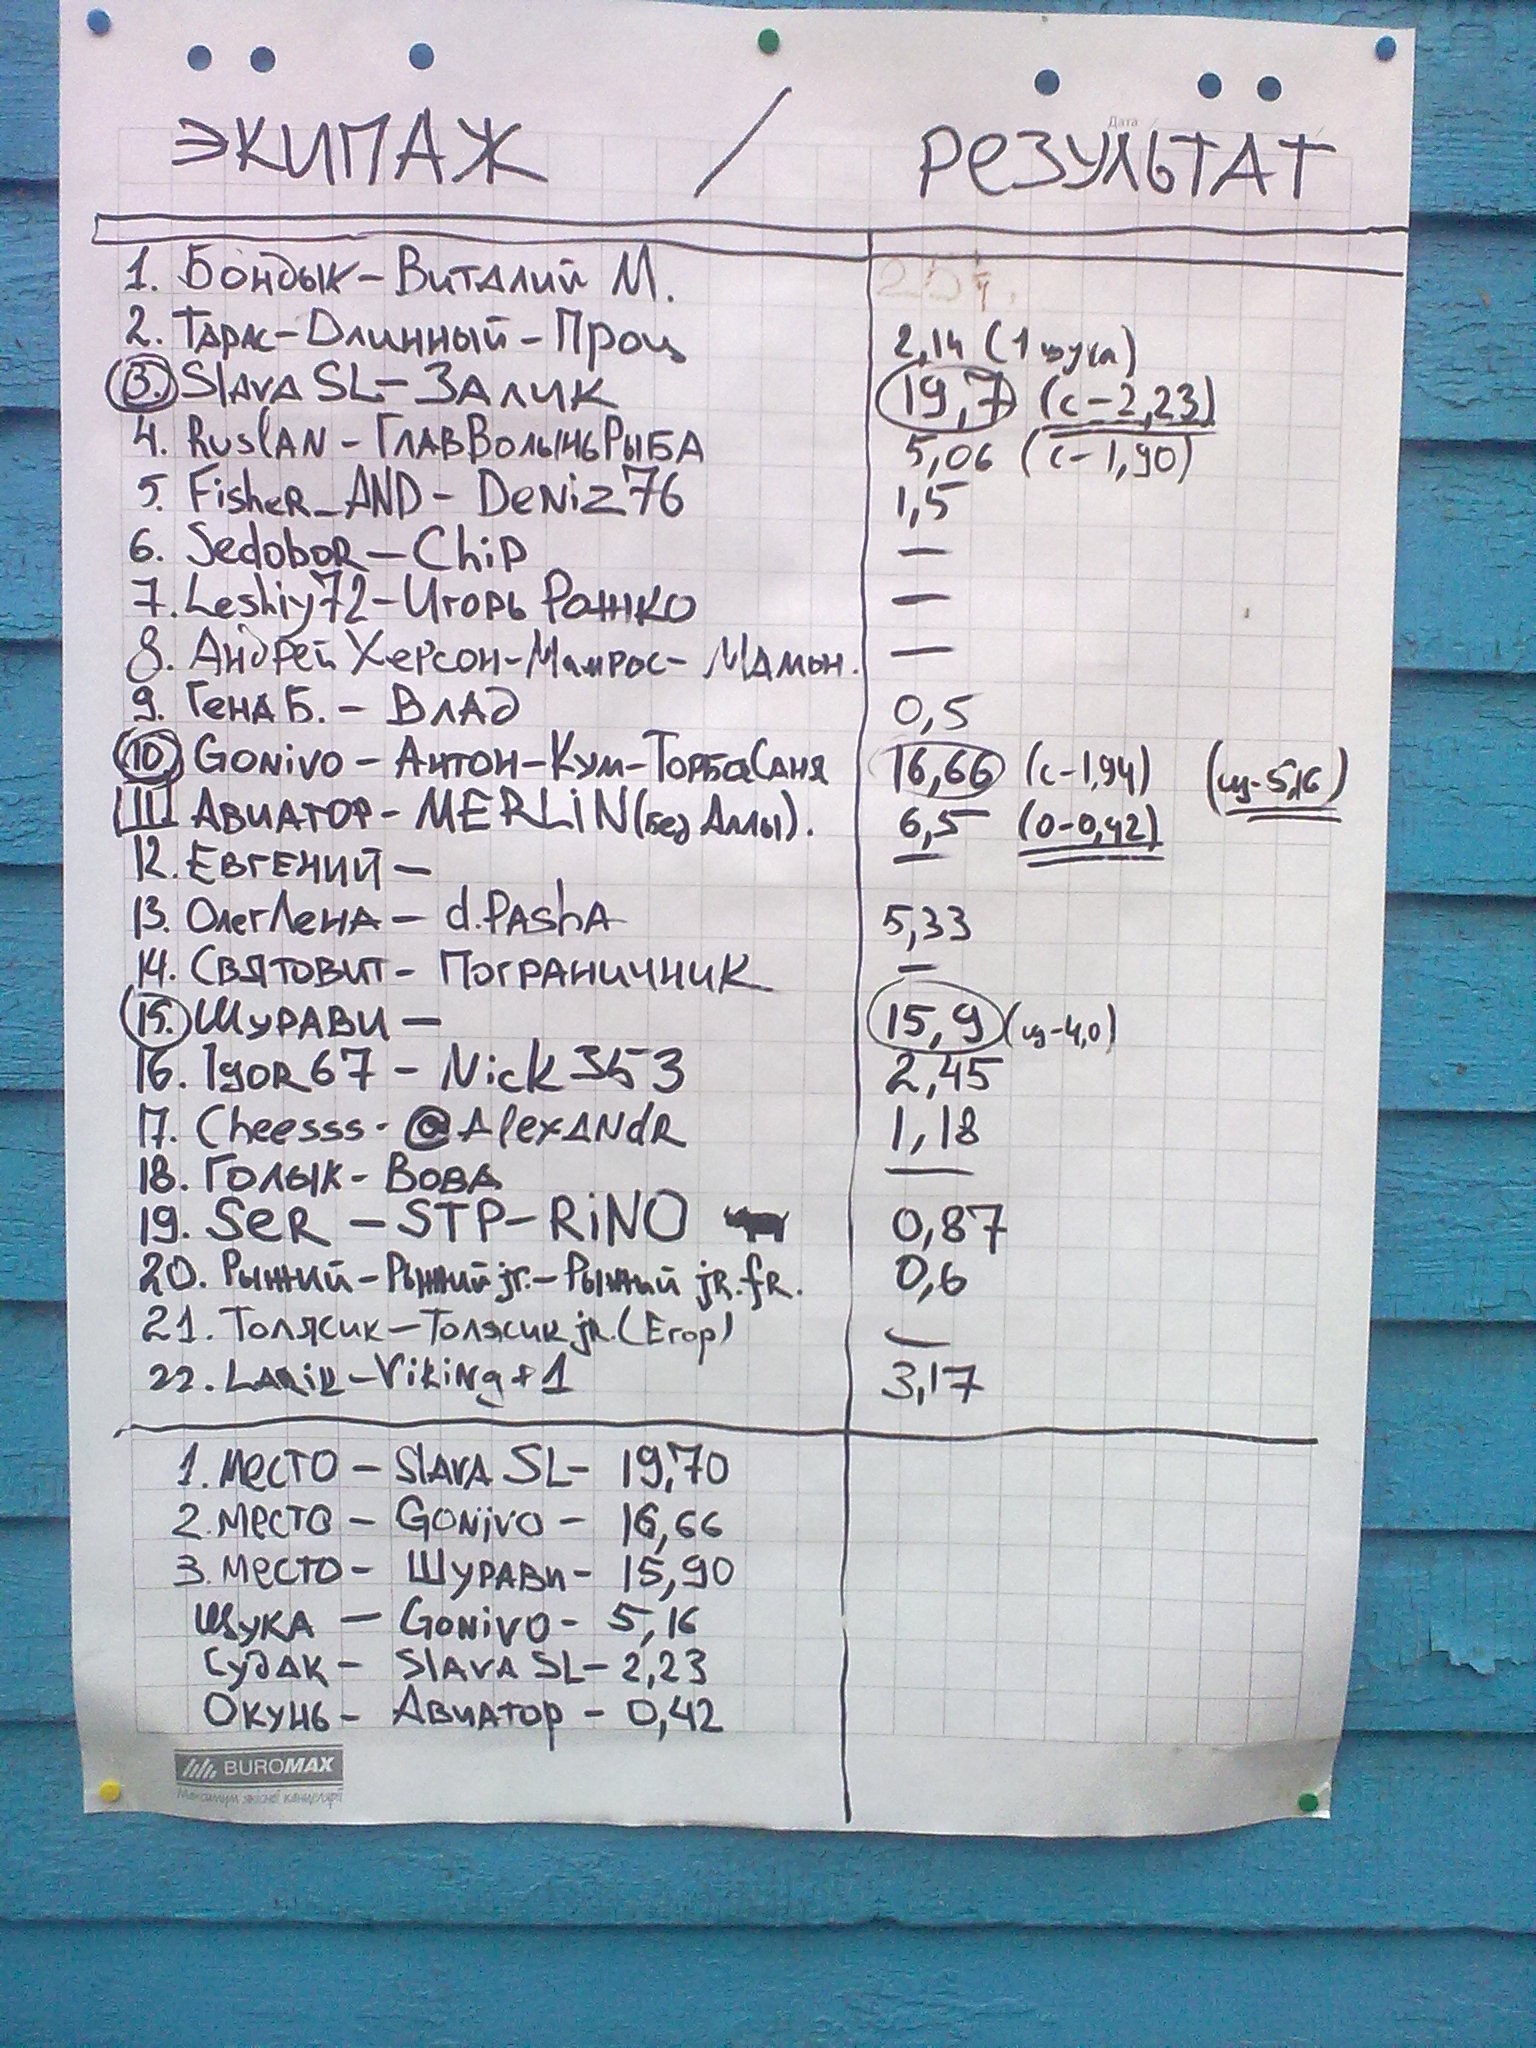 Дата
ЭКИПАЖ / РЕЗУЛЬТАТ
1. Бондык - Виталий М.
2. Тарас - Длинный - Проц 2,14 (1 щука)
3. Slava SL - Залик 19,7 (с - 2,23)
4. Ruslan - ГлавВолыньРыба 5,06 (с - 1,90)
5. Fisher_AND - Deniz76 1,5
6. Sedobor - Chip —
7. Leshiy72 - Игорь Рожко —
8. Андрей Херсон - Матрос - Мамын. —
9. Гена Б. - Влад 0,5
10 Gonivo - Антон - Кум - ТорбаСаня 16,66 (с - 1,94) (щ - 5,16)
11 Авиатор - MERLIN (без Аллы). 6,5 (о - 0,42)
12. Евгений - —
13. ОлегЛена - d.Pasha 5,33
14. Святовит - Пограничник —
15. Шурави - 15,9 (щ - 4,0)
16. Igor67 - Nick353 2,45
17. Cheesss - @Alexandr 1,18
18. Голык - Вова —
19. Ser - STP - RiNO 0,87
20. Рыжий - Рыжий jr. - Рыжий jr.fr. 0,6
21. Толясик - Толясик jr. (Егор) —
22. Larik - Viking + 1 3,17
1. место - Slava SL - 19,70
2. место - Gonivo - 16,66
3. место - Шурави - 15,90
Щука - Gonivo - 5,16
Судак - Slava SL - 2,23
Окунь - Авиатор - 0,42
BUROMAX
Максимум якісної канцелярії